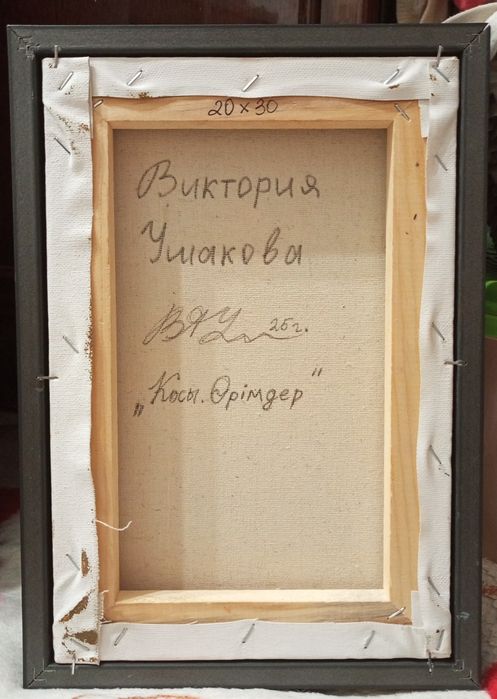 20 x 30
Виктория
Ушакова
ВЯУ 25 г.
„Косы. Өрімдер"